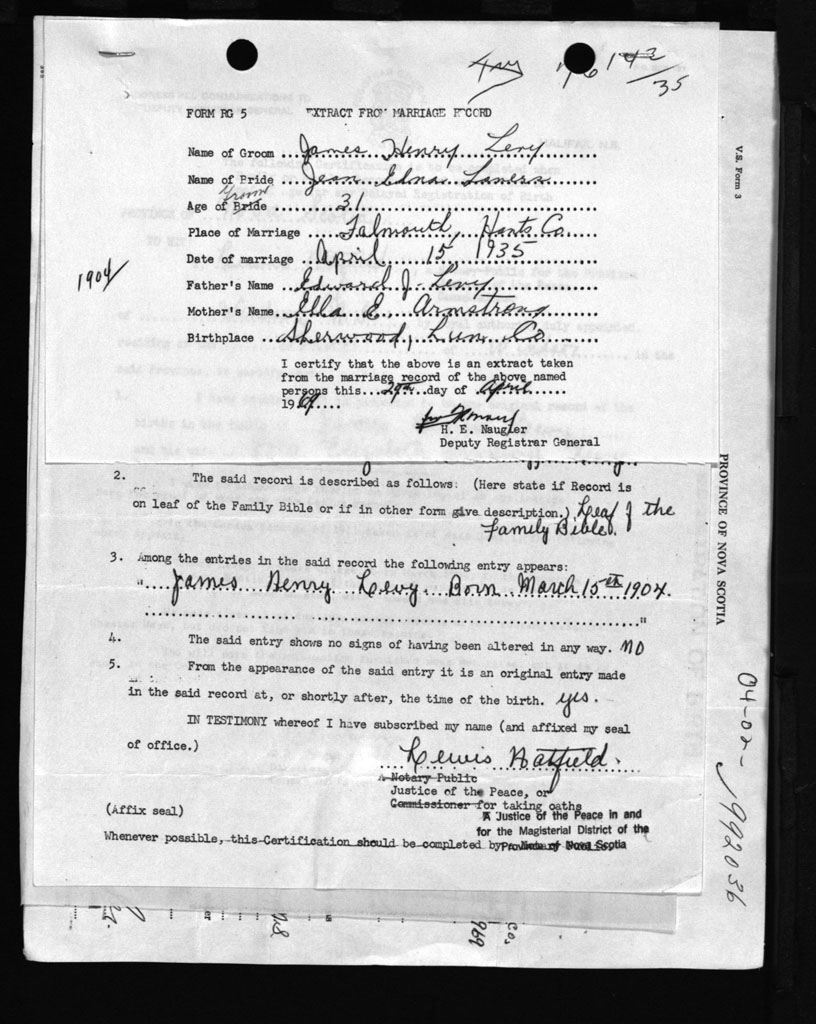 143
/35
FORM RG 5 EXTRACT FROM MARRIAGE RECORD
Name of Groom ...James Henry Levy
Name of Bride ...Jean Edna
Groom
Age of Bride ...31
Place of Marriage ...Falmouth, Hants Co.
Date of marriage ...April 15 1935
1904/
Father's Name ...Edward J. Levy
Mother's Name ...Ella E. Armstrong
Birthplace ...Sherwood, Lun. Co.
I certify that the above is an extract taken
from the marriage record of the above named
persons this...29th...day of April
1969....
H. E. Naugler
Deputy Registrar General
2. The said record is described as follows: (Here state if Record is
on leaf of the Family Bible or if in other form give description.) Leaf of the
Family Bible.
3. Among the entries in the said record the following entry appears:
"....James Henry Levy Born March 15th 1904.
"
4. The said entry shows no signs of having been altered in any way. NO
5. From the appearance of the said entry it is an original entry made
in the said record at, or shortly after, the time of the birth. yes.
IN TESTIMONY whereof I have subscribed my name (and affixed my seal
of office.)
Lewis Hatfield.
A Notary Public
Justice of the Peace, or
Commissioner for taking oaths
(Affix seal)
A Justice of the Peace in and
for the Magisterial District of the
Whenever possible, this Certification should be completed by
Province of Nova Scotia
V.S. Form 3
PROVINCE OF NOVA SCOTIA
04-02-1992036
NS
969
Co.